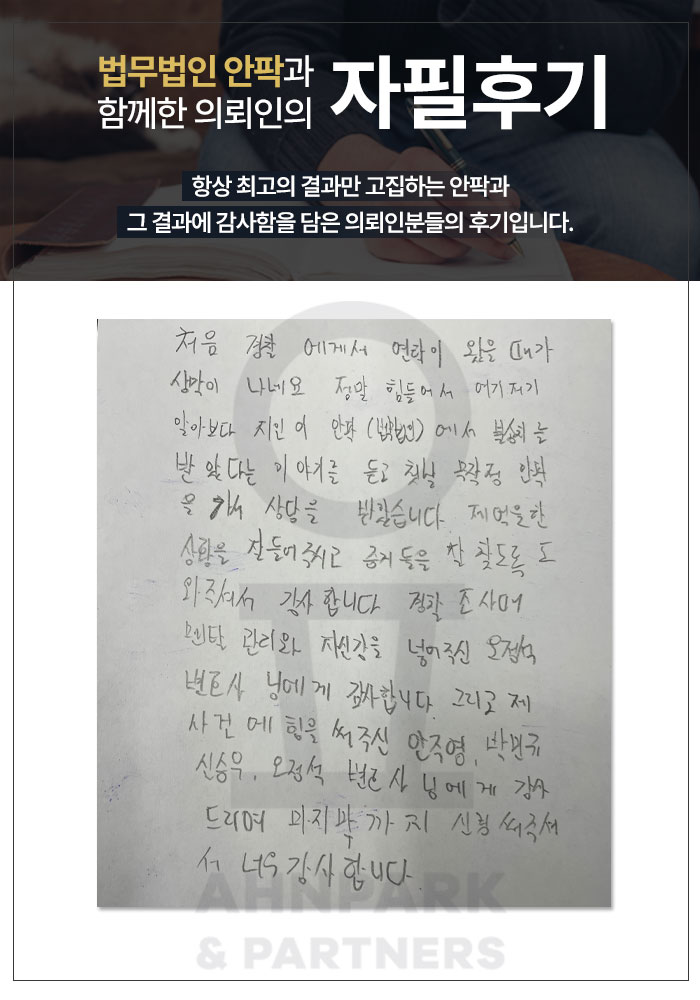 법무법인 안팍과
함께한 의뢰인의
자필후기
항상 최고의 결과만 고집하는 안팍과
그 결과에 감사함을 담은 의뢰인분들의 후기입니다.
처음 경찰 에게서 연락이 왔을 때가
생각이 나네요 정말 힘들어서 여기저기
알아보다 지인이 안팍(법무법인)에서 불송치를
받았다는 이야기를 듣고 첫날 무작정 안팍
을 가서 상담을 받았습니다 제 억울한
상황을 잘들어주시고 증거들을 잘 찾도록 도
와주셔서 감사합니다 경찰 조사때
멘탈 관리와 자신감을 넣어주신 오정석
변호사 님에게 감사합니다. 그리고 제
사건에 힘을 써주신 안주영, 박민규
신승우, 오정석 변호사 님에게 감사
드리며 마지막까지 신경 써주셔
서 너무 감사합니다.
AHNPARK
& PARTNERS